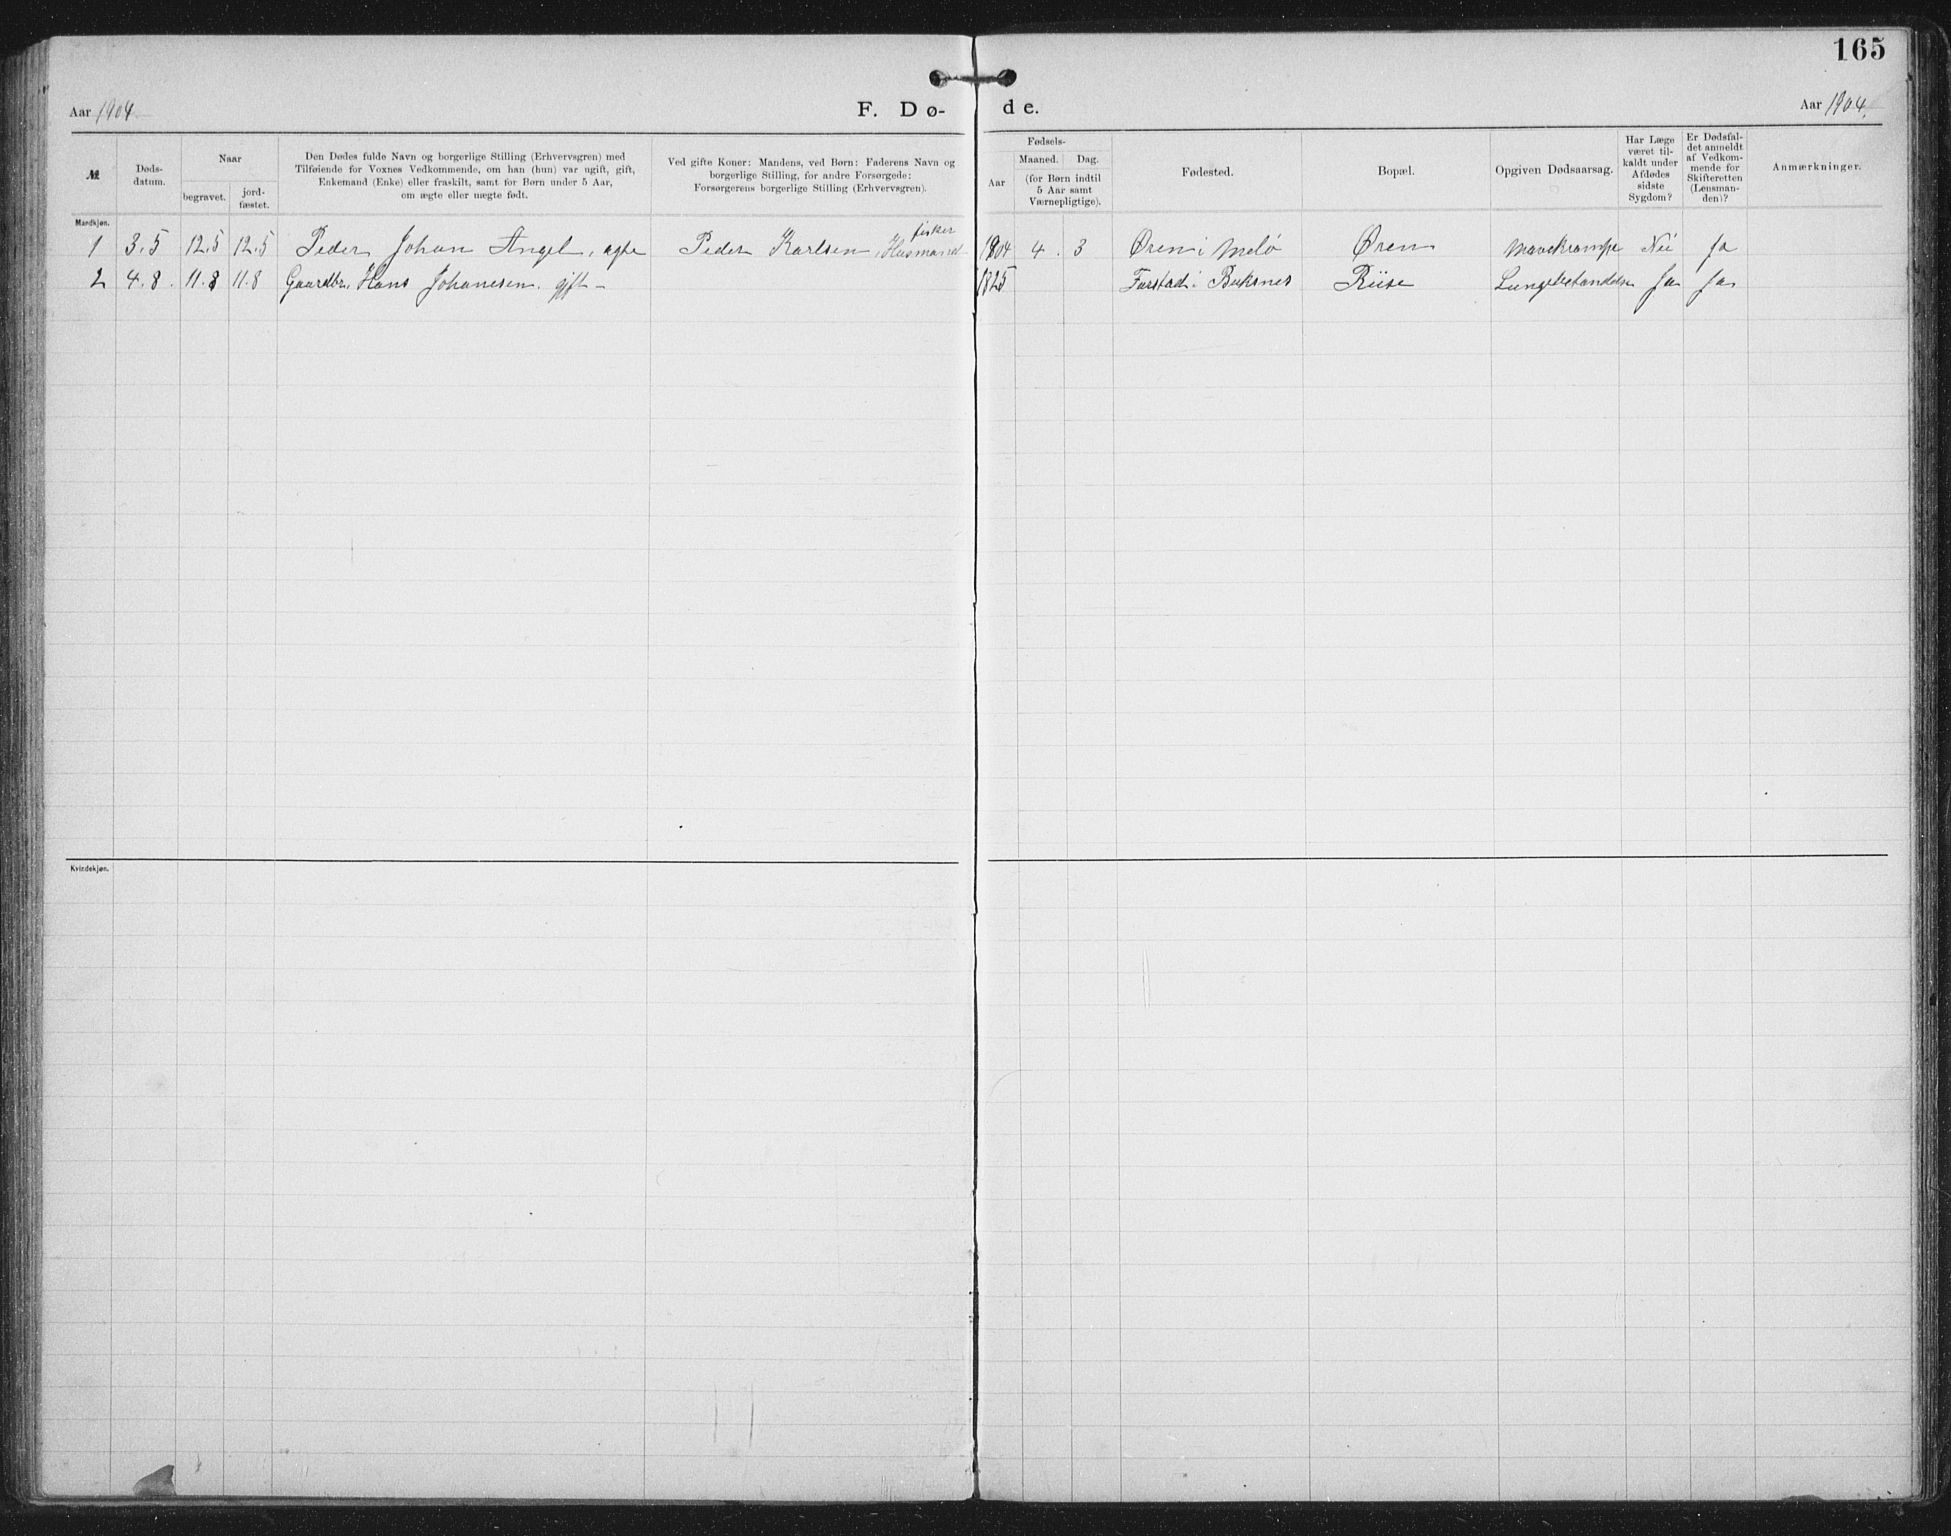 165
Aar 1904
F. Dø- de.
Aar 1904.
№
Døds-
datum.
Naar
begravet.
jord-
fæstet.
Den Dødes fulde Navn og borgerlige Stilling (Erhvervsgren) med
Tilføiende for Voxnes Vedkommende, om han (hun) var ugift, gift,
Enkemand (Enke) eller fraskilt, samt for Børn under 5 Aar,
om ægte eller uægte født.
Ved gifte Koner: Mandens, ved Børn: Faderens Navn og
borgerlige Stilling, for andre Forsørgede:
Forsørgerens borgerlige Stilling (Erhvervsgren).
Fødsels-
Aar
Maaned.
Dag.
(for Børn indtil
5 Aar samt
Værnepligtige).
Fødested.
Bopæl.
Opgiven Dødsaarsag.
Har Læge
været til-
kaldt under
Afdødes
sidste
Sygdom?
Er Dødsfal-
det anmeldt
af Vedkom-
mende for
Skifteretten
(Lensman-
den)?
Anmærkninger.
Mandkjøn.
fisker
1 3.5 12.5 12.5 Peder Johan Angel, ægte Peder Karlsen, Husmand 1904 4. 3 Øren i Melø Øren Mavekrampe Nei Ja
2 4.8. 11.8 11.8 Gaardbr. Hans Johanesen. gift- 1825 Farstad i Buksnes Riise Lungebetændelse Ja Ja
Kvindekjøn.